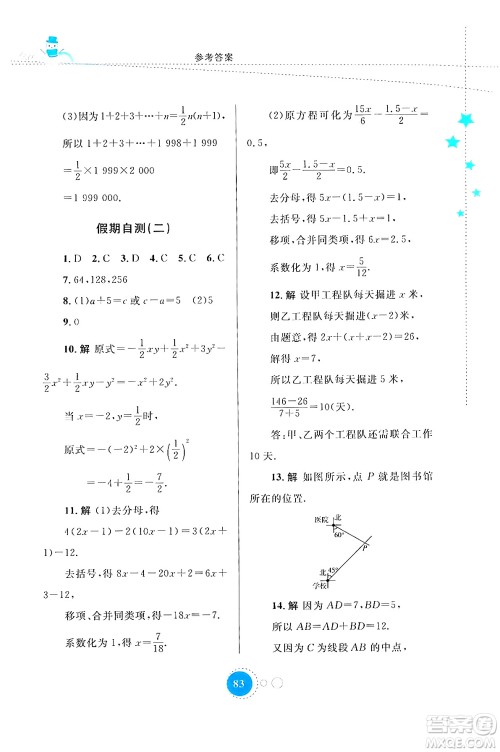 参考答案
(3)因为1+2+3+…+n=1/2n(n+1),
所以1+2+3+…+1 998+1 999
=1/2×1 999×2 000
=1 999 000.
假期自测(二)
1.D 2.C 3.D 4.C 5.C 6.C
7.64,128,256
8.(1)a+5=c或c-a=5 (2)5
9.0
10.解 原式=-1/2xy+1/2x²+3y²-
3/2x²+1/2xy-2y²=-x²+y².
当x=-2,y=1/2时,
原式=-(-2)²+(1/2)²
=-4+1/4=-15/4.
11.解 (1)去分母,得
4(2x-1)-2(10x-1)=3(2x+
1)-12.
去括号,得8x-4-20x+2=
6x+3-12.
移项、合并同类项,得-18x=-7.
系数化为1,得x=7/18.
(2)原方程可化为15x/6-(1.5-x)/2=
0.5,
即5x/2-(1.5-x)/2=0.5.
去分母,得5x-(1.5-x)=1.
去括号,得5x-1.5+x=1.
移项,合并同类项,得6x=2.5.
系数化为1,得x=5/12.
12.解 设甲工程队每天掘进x米,
则乙工程队每天掘进(x-2)米.
由题意,得2x+(x+x-2)=26,
解得x=7,
所以乙工程队每天掘进5米.
(146-26)/(7+5)=10(天).
答:甲、乙两个工程队还需联合工作
10天.
13.解 如图所示,点P就是图书馆
所在的位置.
北
医院
60°
P
北
45°
学校
14.解 因为AD=7,BD=5,
所以AB=AD+BD=12.
又因为C为线段AB的中点,
83